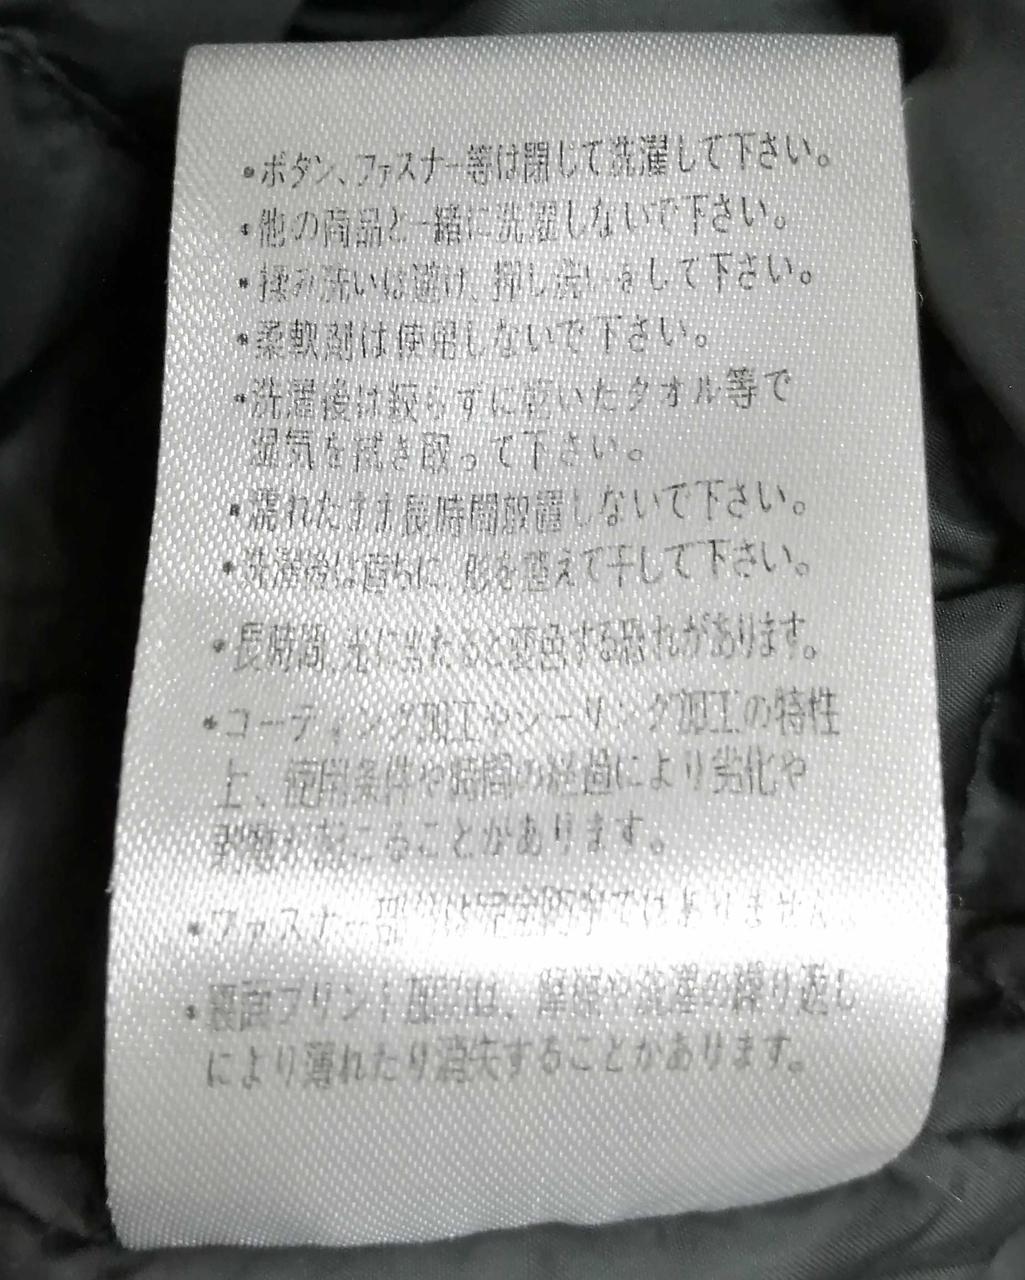 ・ボタン、ファスナー等は閉じて洗濯して下さい。
・他の商品と一緒に洗濯しないで下さい。
・揉み洗いは避け、押し洗いをして下さい。
・柔軟剤は使用しないで下さい。
・洗濯後は絞らずに乾いたタオル等で
湿気を拭き取って下さい。
・濡れたまま長時間放置しないで下さい。
・洗濯後は直ちに、形を整えて干して下さい。
・長時間、光に当たると変色する恐れがあります。
・コーティング加工やシーリング加工の特性
上、使用条件や時間の経過により劣化や
剥離が起こることがあります。
・ファスナー部分は完全防水ではありません。
・裏面プリント部分は、摩擦や洗濯の繰り返し
により薄れたり消失することがあります。